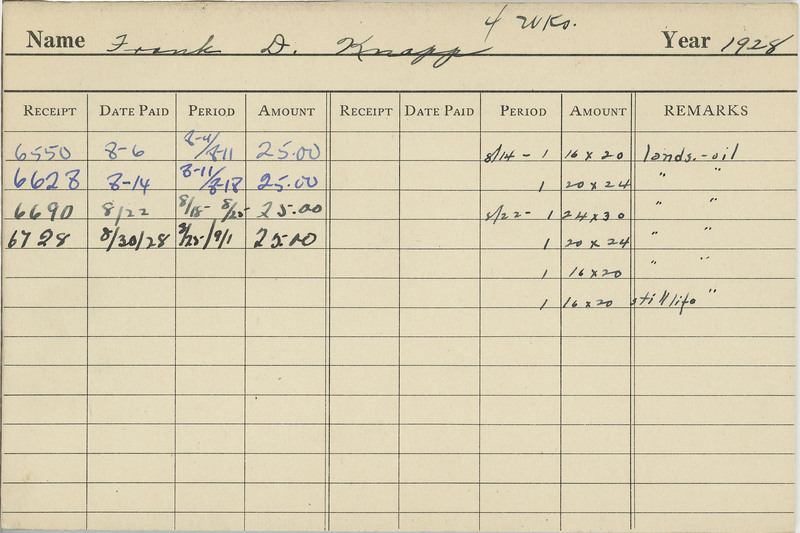 4 Wks.
Name Frank D. Knapp Year 1928
RECEIPT DATE PAID PERIOD AMOUNT RECEIPT DATE PAID PERIOD AMOUNT REMARKS
6550 8-6 8-4/8-11 25.00 8/14 - 1 16 x 20 lands.-oil
6628 8-14 8-11/8-18 25.00 1 20 x 24 " "
6690 8/22 8/18- 8/25- 25.00 8/22- 1 24 x 30 " "
6728 8/30/28 8/25/9/1 25.00 1 20 x 24 " "
1 16 x 20 " "
1 16 x 20 still life "